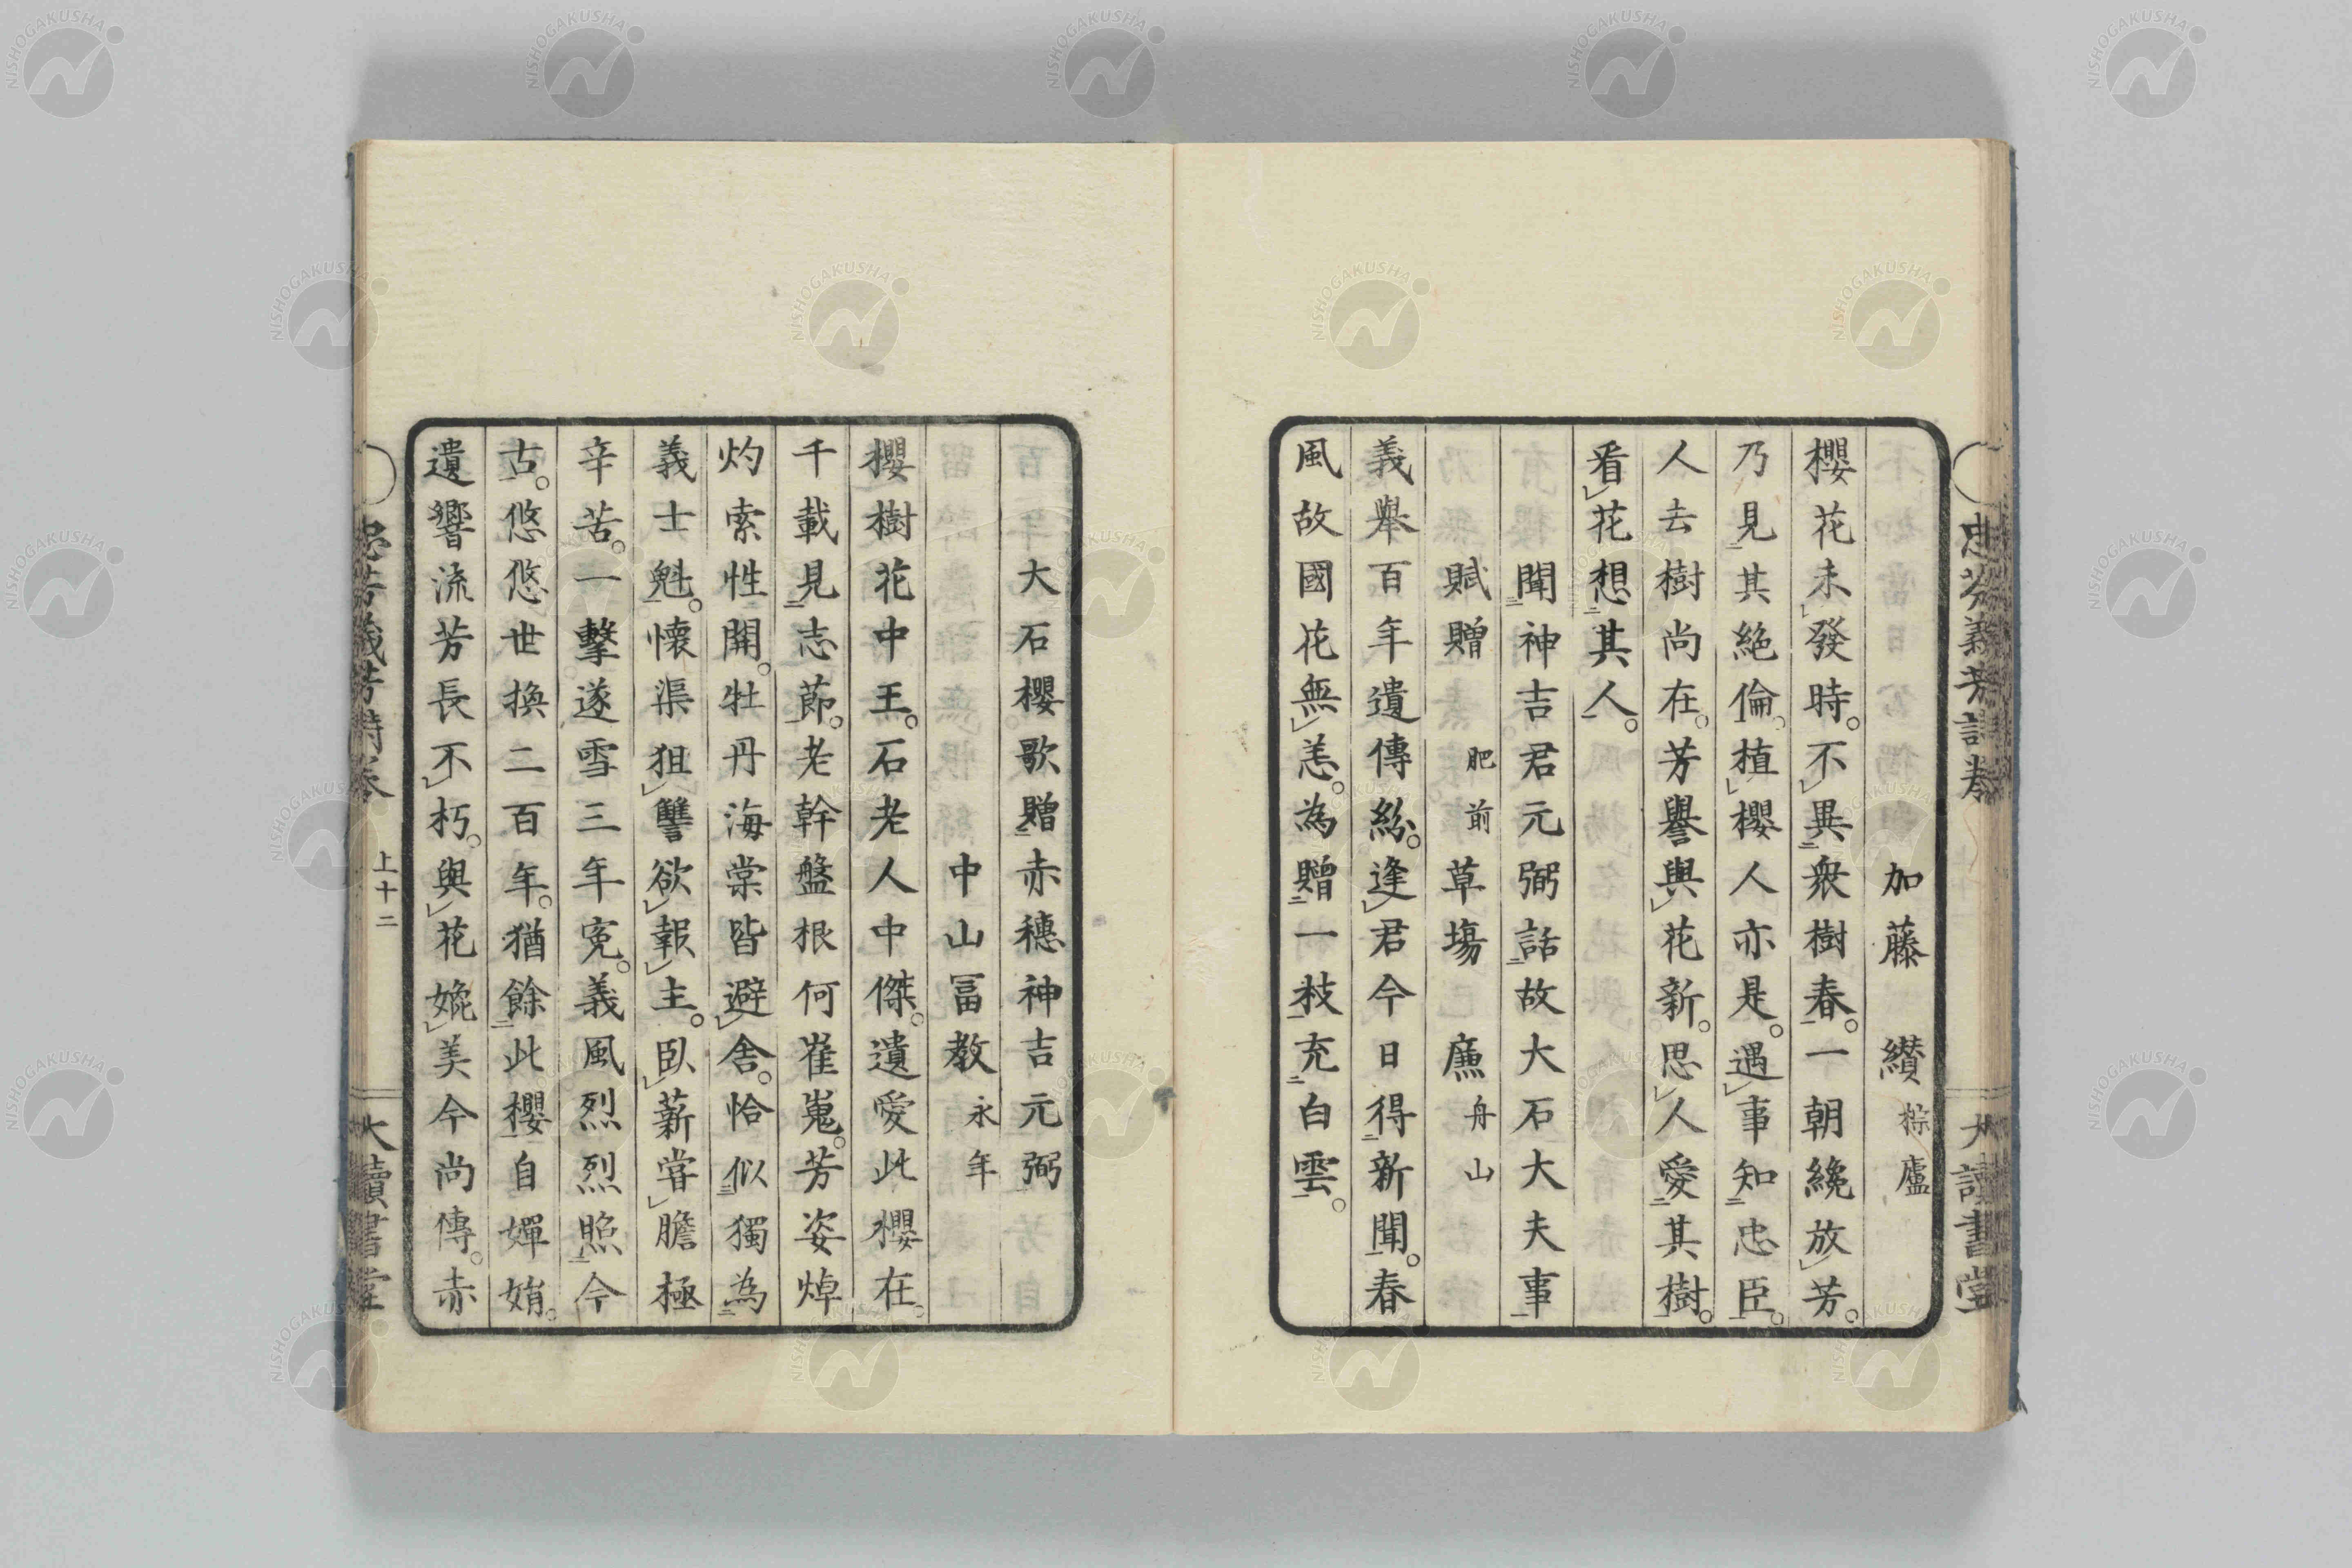 加藤　纉　椶廬
櫻花未發時。不異衆樹春。一朝纔放芳。
乃見其絶倫。植櫻人亦是。遇事知忠臣。
人去樹尚在。芳譽與花新。思人愛其樹。
看花想其人。
聞神吉君元弼話故大石大夫事
賦贈　肥前　草塲　廉　舟山
義舉百年遺傳紛。逢君今日得新聞。春
風故國花無恙。為贈一枝充白雲。
大石櫻歌贈赤穗神吉元弼
中山冨教　永年
櫻樹花中王。石老人中傑。遺愛此櫻在。
千載見志節。老幹盤根何崔嵬。芳姿焯
灼索性開。牡丹海棠皆避舎。恰似獨為
義士魁。懷渠狙讐欲報主。臥薪嘗膽極
辛苦。一擊遂雪三年寃。義風烈烈照今
古。悠悠世換二百年。猶餘此櫻自嬋娟。
遺響流芳長不朽。與花婉美今尚傳。赤
忠芬義芳詩卷
上十二
大讀書堂
忠芬義芳詩卷
大讀書堂
NISHOGAKUSHA